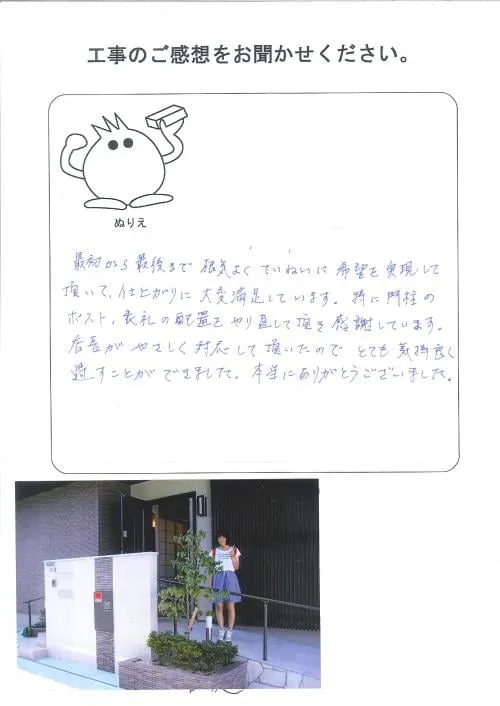 工事のご感想をお聞かせください。
ぬりえ
最初から最後まで 根気よく ていねいに 希望を実現して
頂いて、仕上がりに 大変満足しています。特に門柱の
ポスト、表札の配置をやり直して頂き感謝しています。
店長が やさしく 対応して頂いたので とても 気持良く
過すことができました。本当にありがとうございました。